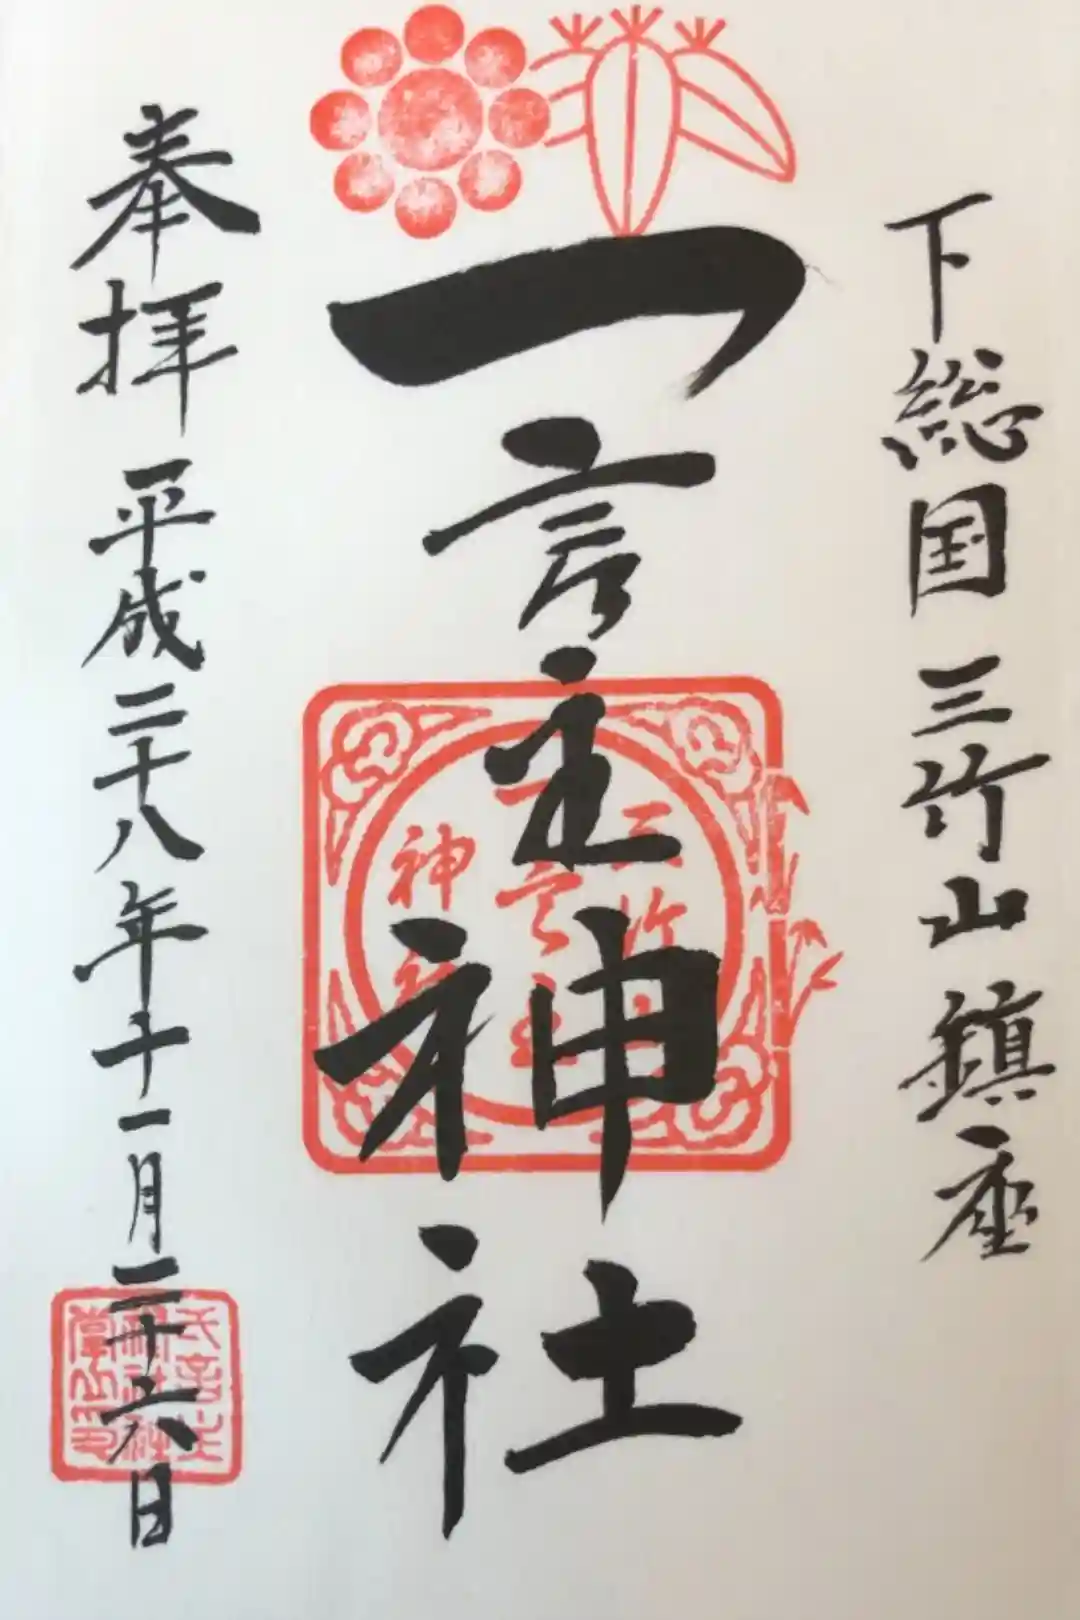 下総国三竹山鎮座
一言主神社
奉拝平成二十八年十一月二十六日